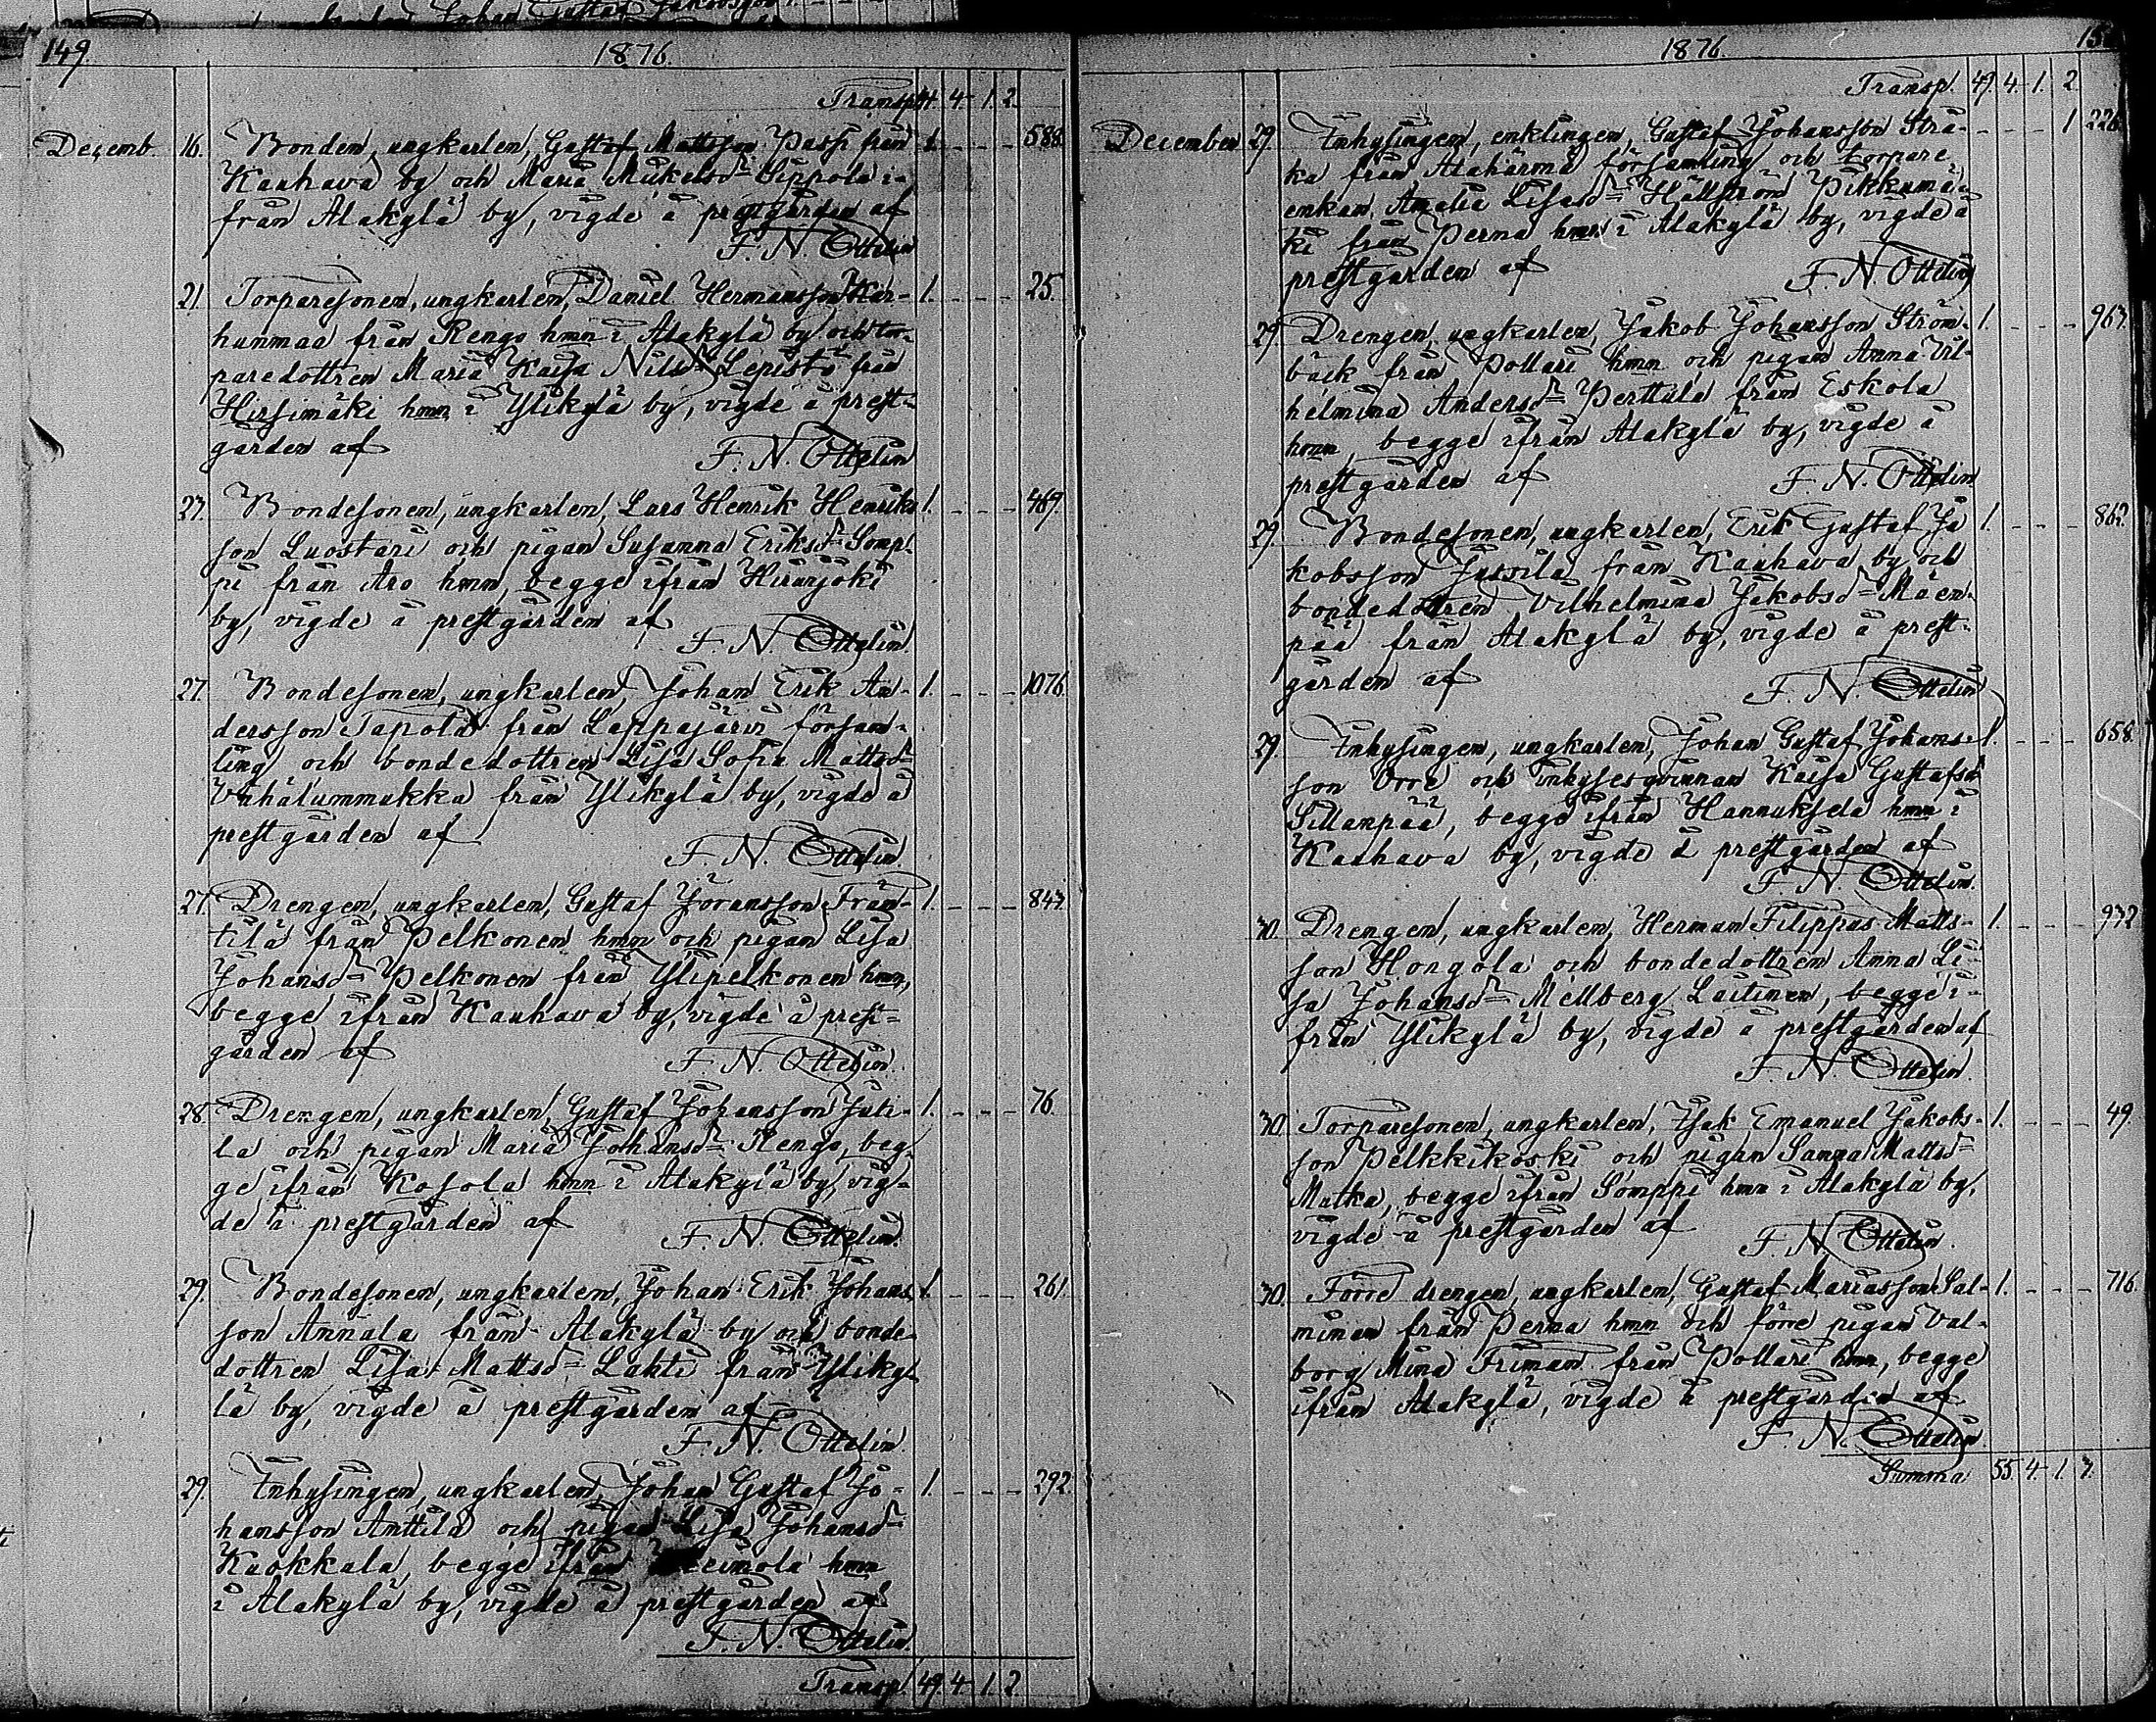 149.
1876.
Transp. 41 4 1. 2.
Decemb. 16. Bonden, ungkarlen, Gustaf Mattsson Passi från 1. - - - 588.
Kauhava by och Maria Mickelsd= Sippola i-
från Alakylä by, vigde å prestgården af
F. N. Ottelin
21. Torparesonen, ungkarlen, Daniel Hermansson Kar- 1. - - - 25.
hunmaa från Rengo hmn i Alakylä by och tor-
paredottren Maria Kaisa Nilsd= Lepistö från
Hirsimäki hmn i Ylikylä by, vigde å prest-
gården af
F. N. Ottelin
27. Bondesonen, ungkarlen, Lars Henrik Henriks 1. - - - 469.
son Luostari och pigan Susanna Eriksd= Somp-
pi från Aro hmn, begge ifrån Hirvijoki
by, vigde å prestgården af
F. N. Ottelin
27. Bondesonen, ungkarlen, Johan Erik An- 1. - - - 1076.
dersson Tapola från Lappajärvi försam-
ling och bondedottren Lisa Sofia Mattsd=
Vähälummukka från Ylikylä by, vigde å
prestgården af
F. N. Ottelin.
27. Drengen, ungkarlen, Gustaf Göransson Fran- 1. - - - 843.
tilä från Pelkonen hmn och pigan Lisa
Johansd= Pelkonen från Ylipelkonen hmn,
begge ifrån Kauhava by, vigde å prest=
gården af
F. N. Ottelin.
28. Drengen, ungkarlen, Gustaf Johansson Juti- 1. - - - 76.
la och pigan Maria Johansd= Rengo, beg-
ge ifrån Kosola hmn i Alakylä by, vig=
de å prestgården af
F. N. Ottelin.
29. Bondesonen, ungkarlen, Johan Erik Johans 1. - - - 261.
son Annala från Alakylä by och bonde-
dottren Lisa Mattsd= Lahti från Yliky-
lä by, vigde å prestgården af
F. N. Ottelin
29. Inhysingen, ungkarlen, Johan Gustaf Jo= 1. - - - 292.
hansson Anttila och pigan Lisa Johansd=
Kuokkala, begge ifrån hmn
i Alakylä by, vigde å prestgården af
F. N. Ottelin.
Transp. 49 4 1. 2
1876.
Transp. 49. 4. 1. 2.
December 29. Inhysingen, enklingen, Gustaf Johansson Strå- - - - 1 226.
ka från Alahärmä församling och torpare-
enkan, Amalia Lisasd= Hällström Pikkumä-
ki från Perna hmn i Alakylä by, vigde å
prestgården af
F. N. Ottelin
29. Drengen, ungkarlen, Jakob Johansson Ström- 1. - - - 963.
bäck från Pollari hmn och pigan Anna Vil-
helmina Andersd= Perttula från Eskola
hmn begge ifrån Alakylä by, vigde å
prestgården af
F. N. Ottelin
29. Bondesonen, ungkarlen, Erik Gustaf Ja 1. - - - 862.
kobsson Jussila från Kauhava by och
bondedottren Vilhelmina Jakobsd= Mäen-
pää från Alakylä by, vigde å prest-
gården af
F. N. Ottelin
29. Inhysingen, ungkarlen, Johan Gustaf Johans- 1. - - - 658.
son Orre och inhysesqvinnan Kaisa Gustafsd
Sillanpää, begge ifrån Hannuksela hmn i
Kauhava by, vigde å prestgården af
F. N. Ottelin.
30. Drengen, ungkarlen, Herman Filippus Matts- 1. - - - 932
son Hongola och bondedottren Anna Li-
sa Johansd= Mellberg Laitinen, begge i-
från Ylikylä by, vigde å prestgården af
F. N. Ottelin.
30. Torparesonen, ungkarlen, Isak Emanuel Jakobs- 1. - - - 49.
son Pelkkikoski och pigan Sanna Mattsd=
Matka, begge ifrån Somppi hmn i Alakylä by,
vigde å prestgården af
F. N. Ottelin.
30. Förre drengen, ungkarlen, Gustaf Mariasson Sal- 1. - - - 716.
minen från Perna hmn och förre pigan Val-
borg Mina Friman från Pollari hmn, begge
ifrån Alakylä, vigde å prestgården af
F. N. Ottelin.
Summa 55. 4. 1. 3.